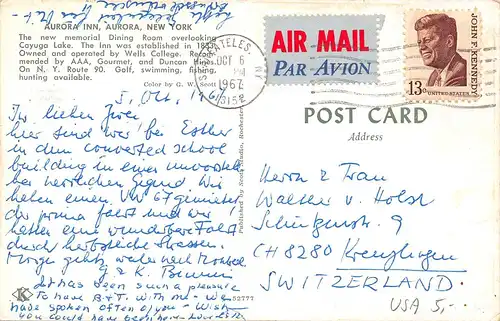 AURORA INN, AURORA, NEW YORK
The new memorial Dining Room overlooking
Cayuga Lake. The Inn was established in 1833.
Owned and operated by Wells College. Recom-
mended by AAA, Gourmet, and Duncan Hines.
On N. Y. Route 90. Golf, swimming, fishing,
hunting available.
Color by G. W. Scott
AIR MAIL
PAR AVION
SKANEATELES
OCT 6
PM
1967
13152
JOHN F. KENNEDY
13c UNITED STATES
POST CARD
Address
5. Okt. 1967
Ihr lieben Zwei
hier sind wir bei Esther
in dem converted school
building in einer unvorstell-
bar herrlichen Gegend. Wir
haben einen VW 67 gemietet
der prima fährt und wir
hatten eine wunderbare Fahrt
durch herbstliche Strassen.
Morgen geht's weiter nach
G & K
It has been such a pleasure
To have B+T. with me - We
have spoken often of you - Wish
you could have been here
Published by Scott Studio, Rochester
52777
Herrn & Frau
Walter v. Holst
9
CH 8280 Kreuzlingen
SWITZERLAND
USA 5,-